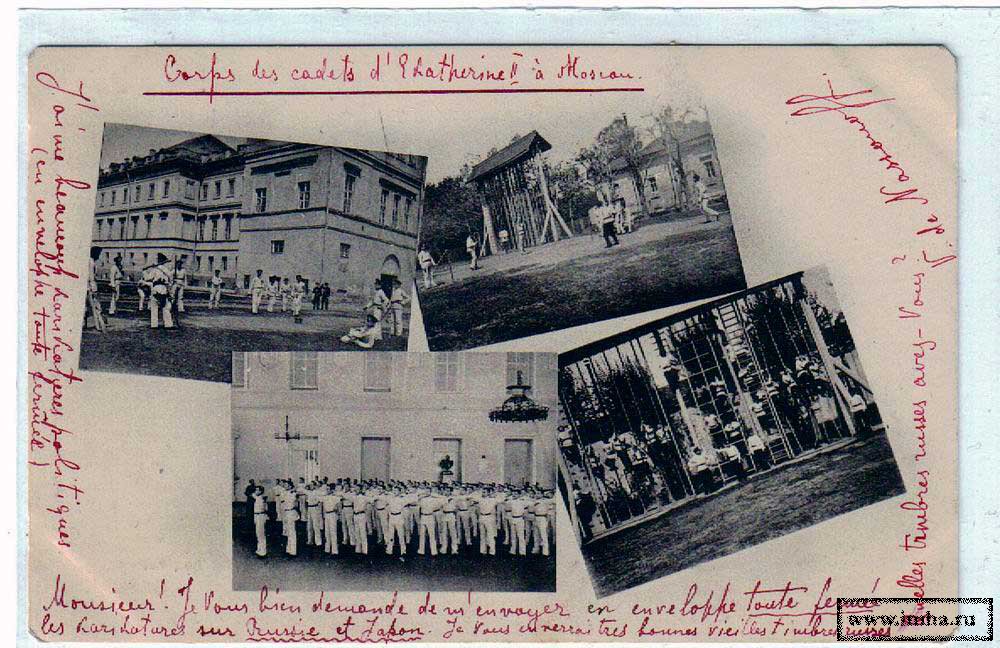 Corps des cadets d'Ekatherine II à Moscou.
J'aime beaucoup karikatures politiques
(en enveloppe toute fermée)
Monsieur! Je Vous bien demande de m'envoyer en enveloppe toute fermée
les karikatures sur Russie et Japon. Je Vous enverrai très bonnes vieilles timbres russes
quelles timbres russes avez-Vous?
J. de
www.imha.ru